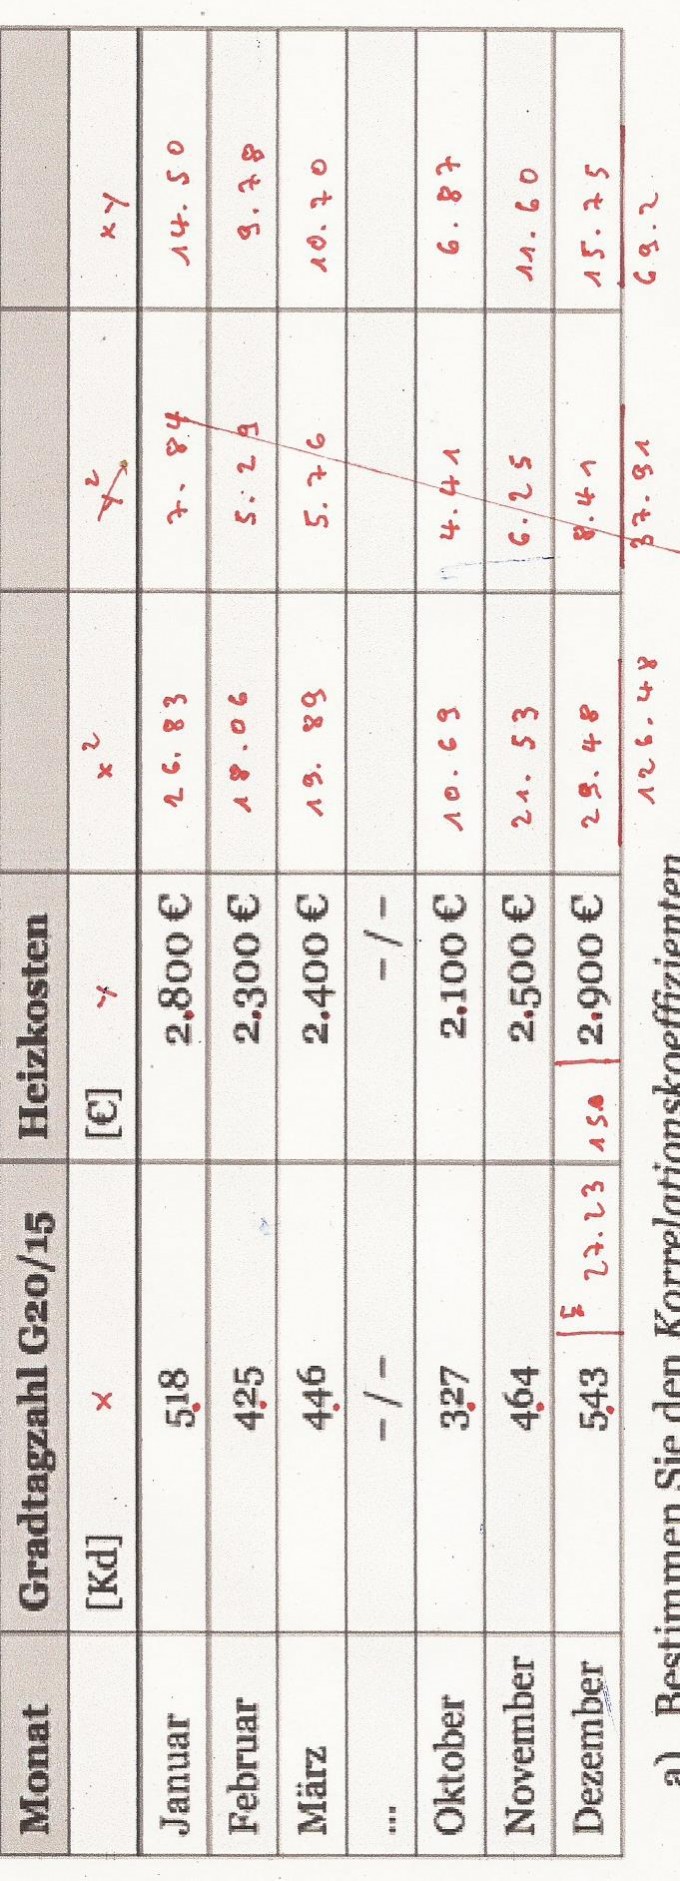 Monat Gradtagzahl G20/15 Heizkosten
[Kd] x [€] y x² y² xy
Januar 518 2.800 € 26.83 7.84 14.50
Februar 425 2.300 € 18.06 5.29 9.78
März 446 2.400 € 19.89 5.76 10.70
... –/– –/–
Oktober 327 2.100 € 10.69 4.41 6.87
November 464 2.500 € 21.53 6.25 11.60
Dezember 543 2.900 € 29.48 8.41 15.75
27.23 126.48 37.91 69.2
a) Bestimmen Sie den Korrelationskoeffizienten